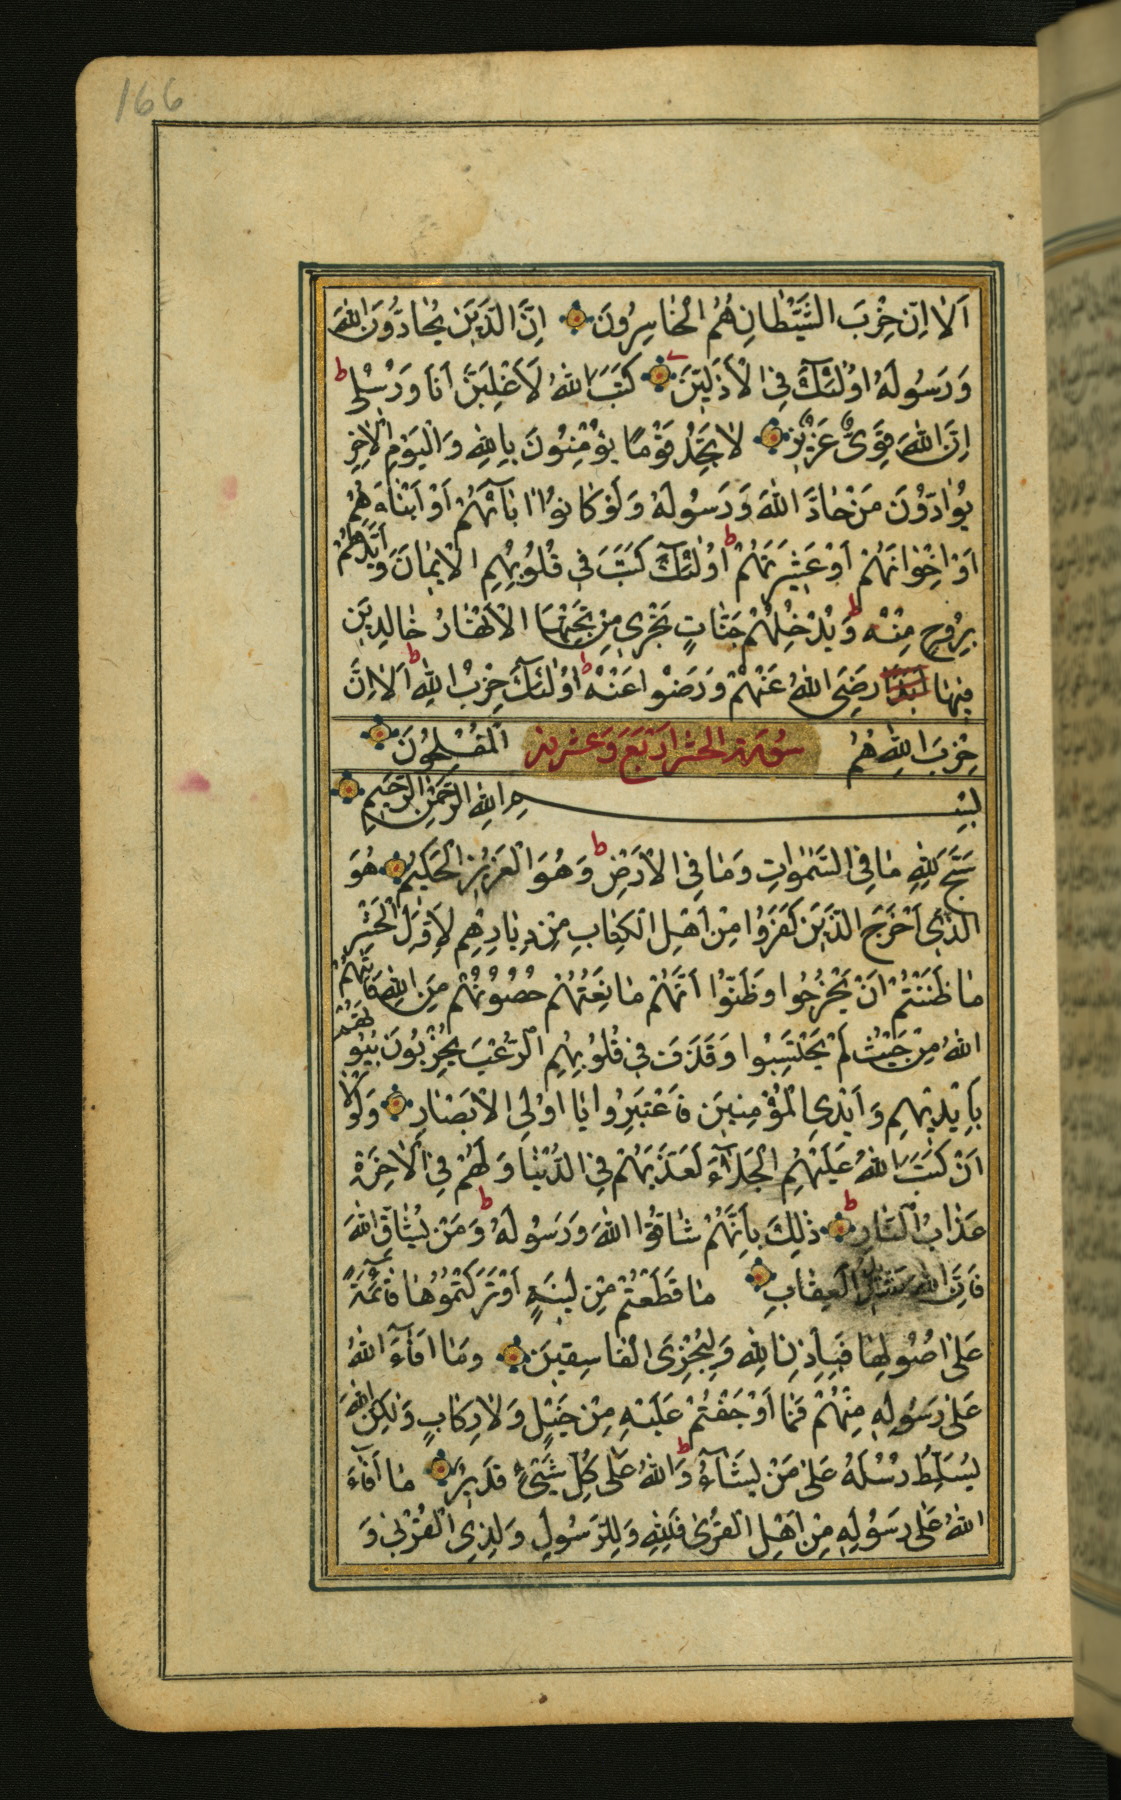 166
اَلٰا اِنَّ حِزْبَ الشَّيْطٰانِ هُمُ الْخٰاسِرُونَ اِنَّ الَّذِينَ يُحٰادُّونَ اللهَ
وَرَسُولَهُ اُولٰئِكَ فِى الْاَذَلِّينَ كَتَبَ اللهُ لَاَغْلِبَنَّ اَنَا وَرُسُلِى ط
اِنَّ اللهَ قَوِىٌّ عَزِيزٌ لٰا تَجِدُ قَوْمًا يُؤْمِنُونَ بِاللهِ وَالْيَوْمِ الْاٰخِرِ
يُوٰادُّونَ مَنْ حٰادَّ اللهَ وَرَسُولَهُ وَلَوْ كٰانُوا اٰبٰآئَهُمْ اَوْ اَبْنٰاءَهُمْ
اَوْ اِخْوٰانَهُمْ اَوْ عَشِيرَتَهُمْ ط اُولٰئِكَ كَتَبَ فِى قُلُوبِهِمِ الْاِيمٰانَ وَاَيَّدَهُمْ
بِرُوحٍ مِنْهُ ط وَيُدْخِلُهُمْ جَنّٰاتٍ تَجْرِى مِنْ تَحْتِهَا الْاَنْهٰارُ خٰالِدِينَ
فِيهٰا اَبَدًا رَضِىَ اللهُ عَنْهُمْ وَرَضُوا عَنْهُ ط اُولٰئِكَ حِزْبُ اللهِ ط اَلٰا اِنَّ
حِزْبَ اللهِ هُمُ الْمُفْلِحُونَ
سُورَة الحشر اَرْبَعَ وَعشرين
بِسْمِ اللهِ الرَّحْمٰنِ الرَّحِيمِ
سَبَّحَ لِلّٰهِ مٰا فِى السَّمٰوٰاتِ وَمٰا فِى الْاَرْضِ ط وَهُوَ الْعَزِيزُ الْحَكِيمُ هُوَ
الَّذِى اَخْرَجَ الَّذِينَ كَفَرُوا مِنْ اَهْلِ الْكِتٰابِ مِنْ دِيٰارِهِمْ لِاَوَّلِ الْحَشْرِ
مٰا ظَنَنْتُمْ اَنْ يَخْرُجُوا وَظَنُّوا اَنَّهُمْ مٰانِعَتُهُمْ حُصُونُهُمْ مِنَ اللهِ فَاَتٰيهُمُ
اللهُ مِنْ حَيْثُ لَمْ يَحْتَسِبُوا وَقَذَفَ فِى قُلُوبِهِمِ الرُّعْبَ يُخْرِبُونَ بُيُوتَهُمْ
بِاَيْدِيهِمْ وَاَيْدِى الْمُؤْمِنِينَ فَاعْتَبِرُوا يٰا اُولِى الْاَبْصٰارِ وَلَوْلٰا
اَنْ كَتَبَ اللهُ عَلَيْهِمِ الْجَلٰآءَ لَعَذَّبَهُمْ فِى الدُّنْيٰا وَلَهُمْ فِى الْاٰخِرَةِ
عَذٰابُ النّٰارِ ط ذٰلِكَ بِاَنَّهُمْ شٰاقُّوا اللهَ وَرَسُولَهُ ط وَمَنْ يُشٰاقِّ اللهَ
فَاِنَّ اللهَ شَدِيدُ الْعِقٰابِ مٰا قَطَعْتُمْ مِنْ لِينَةٍ اَوْ تَرَكْتُمُوهٰا قٰائِمَةً
عَلٰى اُصُولِهٰا فَبِاِذْنِ اللهِ وَلِيُخْزِىَ الْفٰاسِقِينَ وَمٰا اَفٰآءَ اللهُ
عَلٰى رَسُولِهِ مِنْهُمْ فَمٰا اَوْجَفْتُمْ عَلَيْهِ مِنْ خَيْلٍ وَلٰا رِكٰابٍ وَلٰكِنَّ اللهَ
يُسَلِّطُ رُسُلَهُ عَلٰى مَنْ يَشٰآءُ ط وَاللهُ عَلٰى كُلِّ شَيْئٍ قَدِيرٌ مٰا اَفٰآءَ
اللهُ عَلٰى رَسُولِهِ مِنْ اَهْلِ الْقُرٰى فَلِلّٰهِ وَلِلرَّسُولِ وَلِذِى الْقُرْبٰى وَ